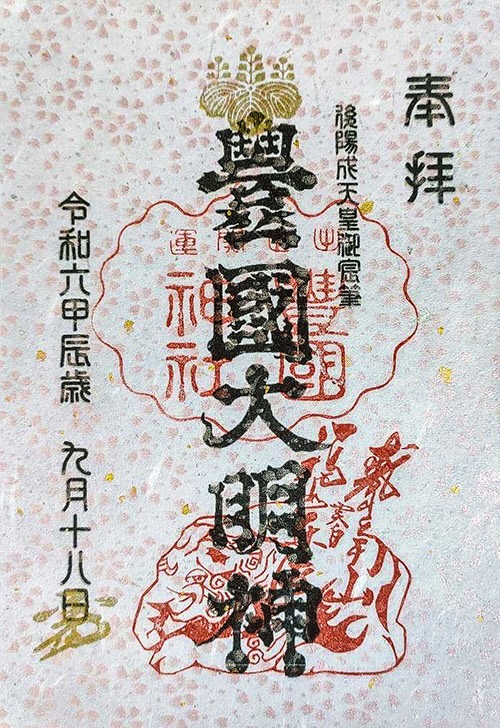 奉拝
後陽成天皇御宸筆
豊國大明神
出世開運
豊國神社
令和六甲辰歳 九月十八日